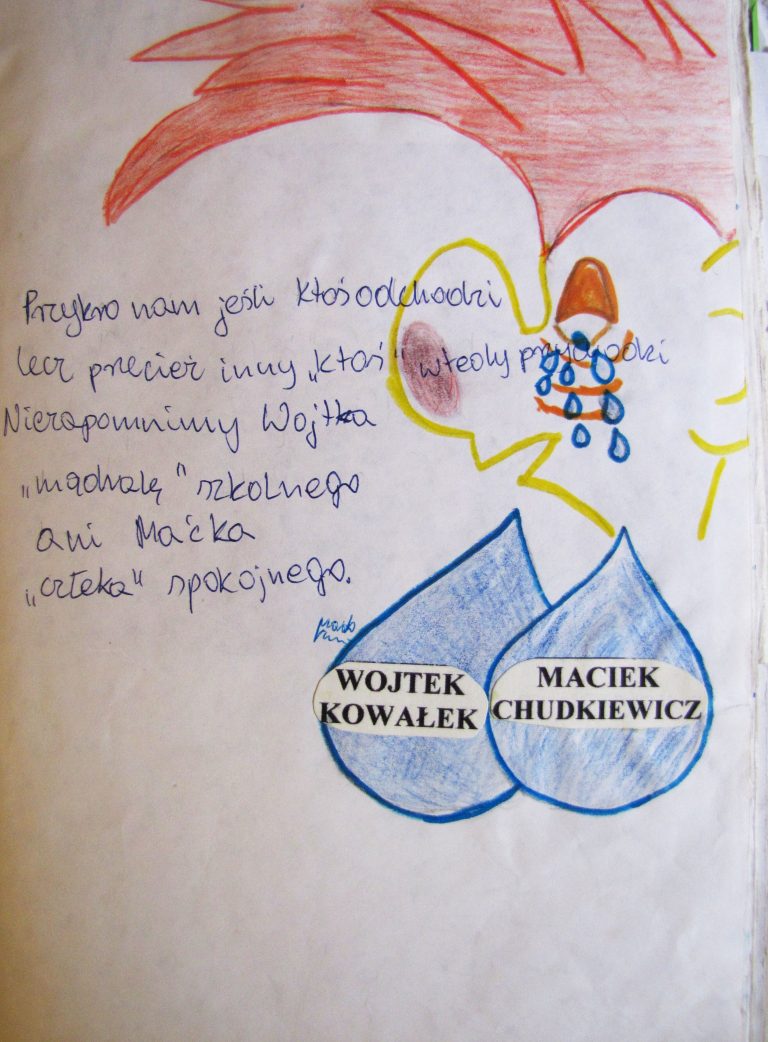 Przykro nam jeśli ktoś odchodzi
lecz przecież inny „ktoś” wtedy przychodzi
Niezapomnimy Wojtka
„mądralę” szkolnego
ani Maćka
„człeka” spokojnego.
WOJTEK
KOWAŁEK
MACIEK
CHUDKIEWICZ